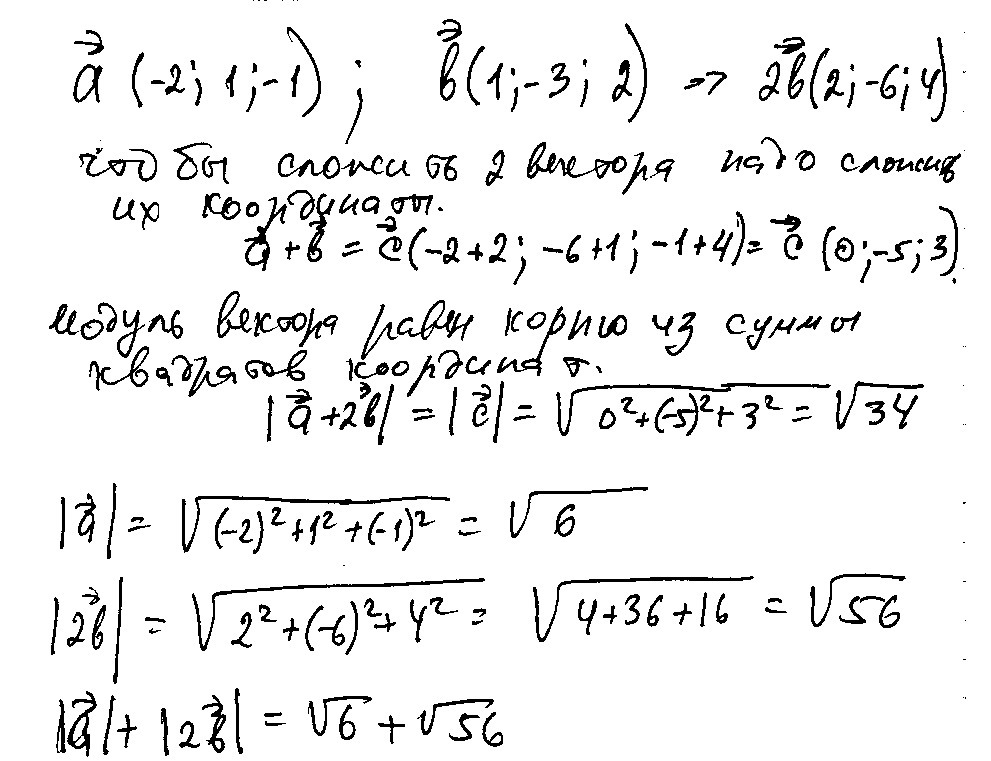 a⃗ (-2; 1; -1) ; b⃗ (1; -3; 2) => 2b⃗ (2; -6; 4)
что бы сложить 2 вектора надо сложить
их координаты.
a⃗ + b⃗ = c⃗ (-2+2; -6+1; -1+4) = c⃗ (0; -5; 3).
модуль вектора равен корню из суммы
квадратов координат.
|a⃗ + 2b⃗| = |c⃗| = √(0² + (-5)² + 3²) = √34
|a⃗| = √((-2)² + 1² + (-1)²) = √6
|2b⃗| = √(2² + (-6)² + 4²) = √(4+36+16) = √56
|a⃗| + |2b⃗| = √6 + √56